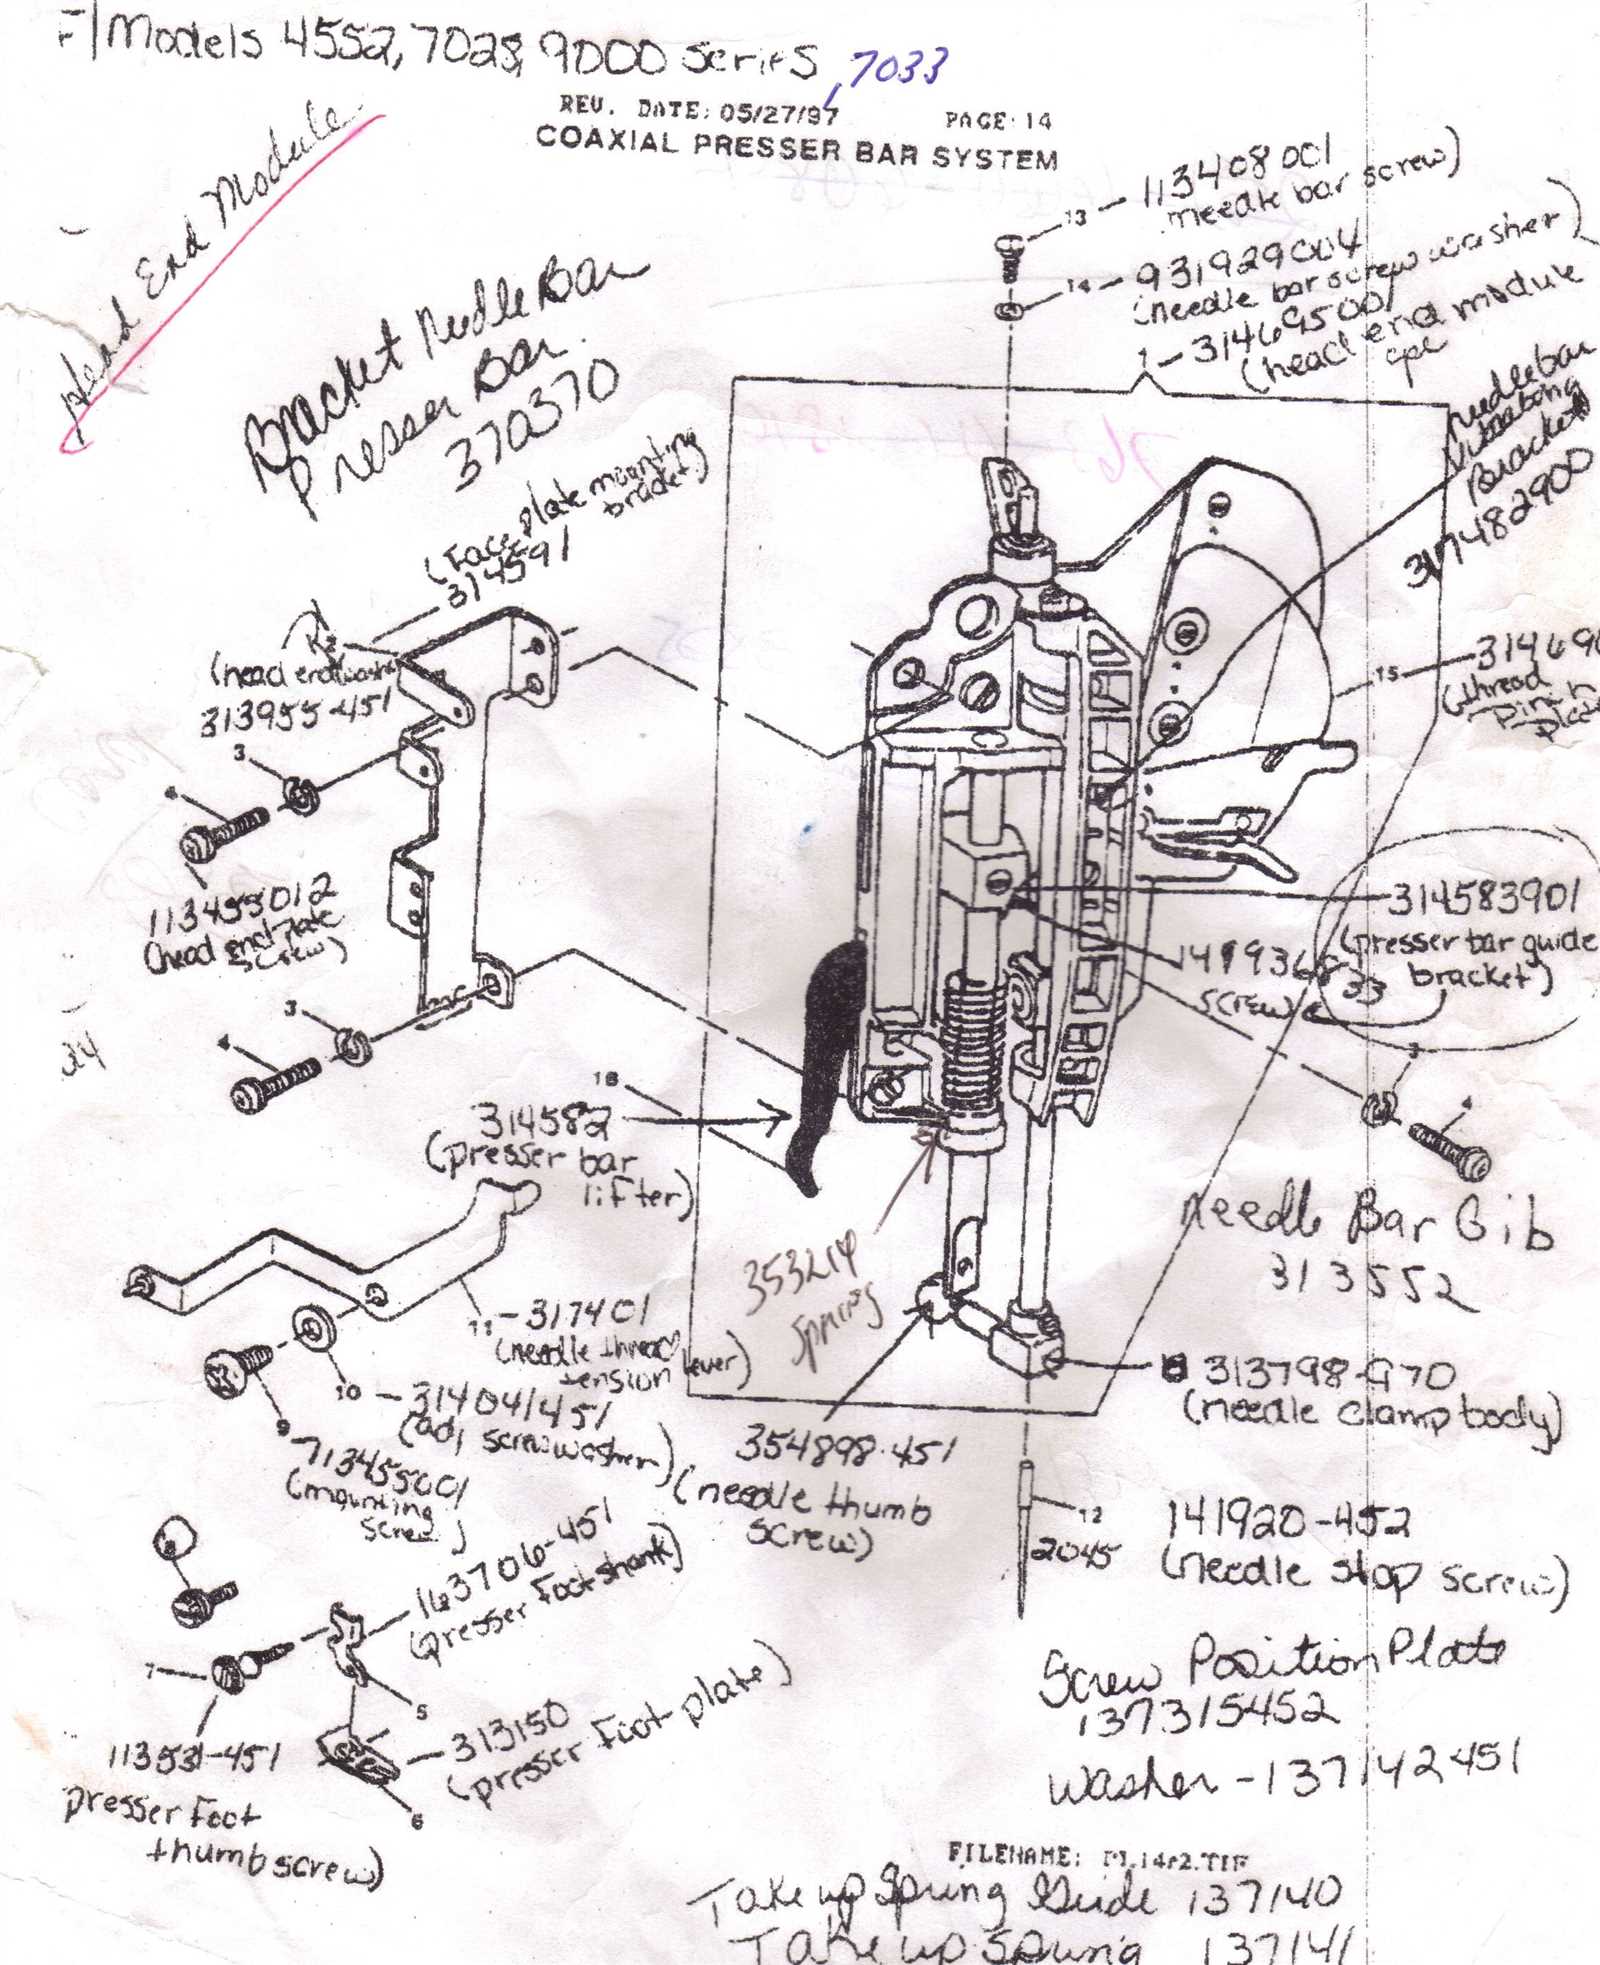 F/Models 4552, 7028, 9000 series, 7033
REV. DATE: 05/27/97 PAGE 14
COAXIAL PRESSER BAR SYSTEM
Head End Module
Bracket Needle Bar
Presser Bar
370370
13 - 113408001
needle bar screw)
14 - 931929004
(needle bar screw washer)
1 - 314695001
(head end module
cpl
needle bar
Bracket
317482900
(Face plate mounting
bracket)
314591
(head end washer
313955-451
3
4
113455012
(head end plate
screw)
3
4
15
(thread
Plate
314583901
(presser bar guide
bracket)
33
screw)
3
4
24
18
314582
(presser bar
lifter)
353214
spring
Needle Bar Gib
313552
11 - 317401
(needle thread
tension lever)
10 - 314041451
(adj screw washer)
9
713455001
(mounting
screw)
313798-970
(needle clamp body)
354898-451
(needle thumb
screw)
12
2045
141920-452
(needle stop screw)
163706-451
(presser foot shank)
7
5
313150
(presser foot plate)
6
113531-451
presser foot
thumb screw)
Screw Position Plate
137315452
washer - 137142451
FILENAME:
Take up Spring Guide 137140
Take up Spring 137141